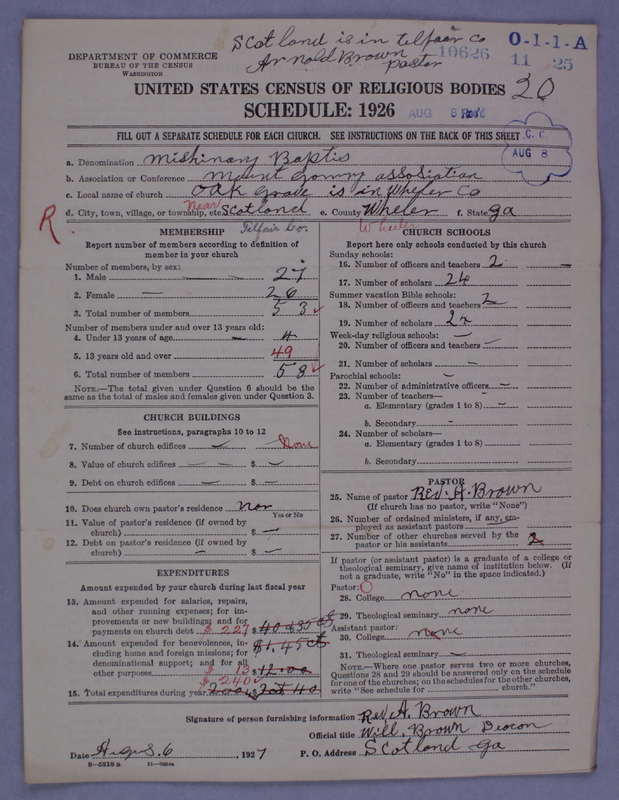 Scotland is in telfair Co
Arnold Brown pastor
10626
O-1-1-A
11 25
DEPARTMENT OF COMMERCE
BUREAU OF THE CENSUS
WASHINGTON
UNITED STATES CENSUS OF RELIGIOUS BODIES 20
SCHEDULE: 1926
AUG 8 Rec'd
FILL OUT A SEPARATE SCHEDULE FOR EACH CHURCH. SEE INSTRUCTIONS ON THE BACK OF THIS SHEET
C. C.
AUG 8
a. Denomination Mishinary Baptis
b. Association or Conference mount Gomry assosiation
c. Local name of church Oak Grave is in Wheler Co
d. City, town, village, or township, etc. Near Scotland e. County Wheler f. State ga
Telfair Co. Wheeler
R.
MEMBERSHIP
Report number of members according to definition of
member in your church
Number of members, by sex:
1. Male 27
2. Female 26
3. Total number of members 53
Number of members under and over 13 years old:
4. Under 13 years of age 4
5. 13 years old and over 49
6. Total number of members 58
NOTE.—The total given under Question 6 should be the
same as the total of males and females given under Question 3.
CHURCH BUILDINGS
See instructions, paragraphs 10 to 12
7. Number of church edifices None
8. Value of church edifices $
9. Debt on church edifices $
10. Does church own pastor's residence non
Yes or No
11. Value of pastor's residence (if owned by
church) $
12. Debt on pastor's residence (if owned by
church) $
EXPENDITURES
Amount expended by your church during last fiscal year
13. Amount expended for salaries, repairs,
and other running expenses; for im-
provements or new buildings; and for
payments on church debt $ 227
14. Amount expended for benevolences, in- $1.45 ct
cluding home and foreign missions; for
denominational support; and for all
other purposes $ 13 $12.00
$240
15. Total expenditures during year
CHURCH SCHOOLS
Report here only schools conducted by this church
Sunday schools:
16. Number of officers and teachers 2
17. Number of scholars 24
Summer vacation Bible schools:
18. Number of officers and teachers 2
19. Number of scholars 24
Week-day religious schools:
20. Number of officers and teachers
21. Number of scholars
Parochial schools:
22. Number of administrative officers
23. Number of teachers—
a. Elementary (grades 1 to 8)
b. Secondary
24. Number of scholars—
a. Elementary (grades 1 to 8)
b. Secondary
PASTOR
25. Name of pastor Rev. A. Brown
(If church has no pastor, write "None")
26. Number of ordained ministers, if any, em-
ployed as assistant pastors
27. Number of other churches served by the
pastor or his assistants 2
If pastor (or assistant pastor) is a graduate of a college or
theological seminary, give name of institution below. (If
not a graduate, write "No" in the space indicated.)
Pastor:
28. College none
29. Theological seminary none
Assistant pastor:
30. College none
31. Theological seminary
NOTE.—Where one pastor serves two or more churches,
Questions 28 and 29 should be answered only on the schedule
for one of the churches; on the schedules for the other churches,
write "See schedule for church."
Signature of person furnishing information Rev. A. Brown
Official title Will. Brown Deacon
Date Augus. 6, 1927 P. O. Address Scotland Ga